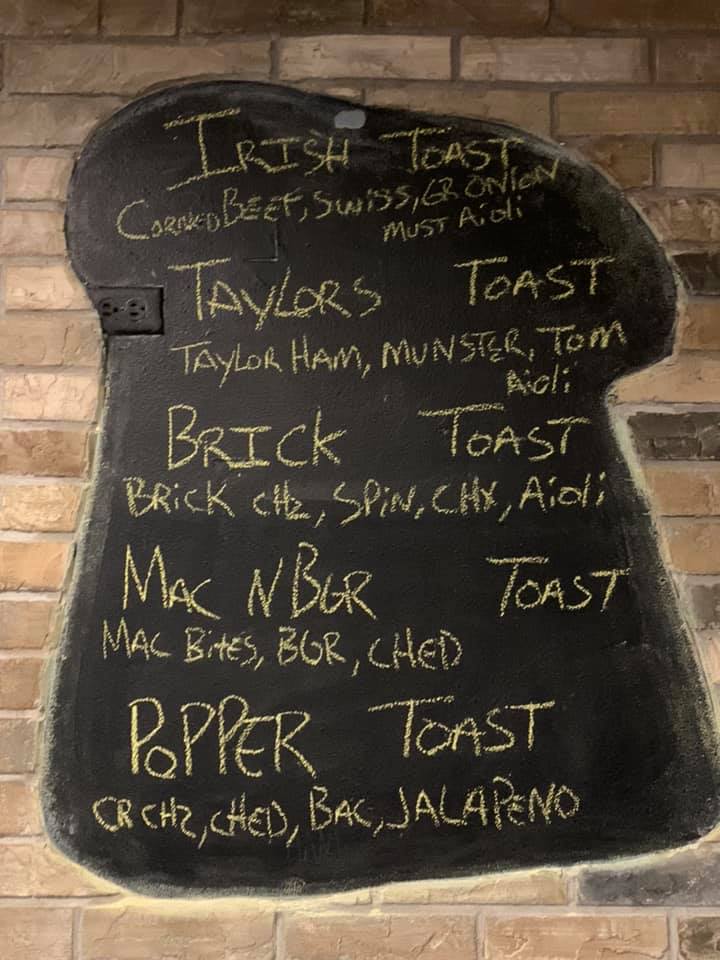 IRISH TOAST
CORNED BEEF, SWISS, GR ONION
MUST Aioli
TAYLORS TOAST
TAYLOR HAM, MUNSTER, TOM
Aioli
BRICK TOAST
BRiCK CHZ, SPiN, CHX, Aioli
MAC N BGR TOAST
MAC BitES, BGR, CHED
POPPER TOAST
CR CHZ, CHED, BAC, JALAPENO